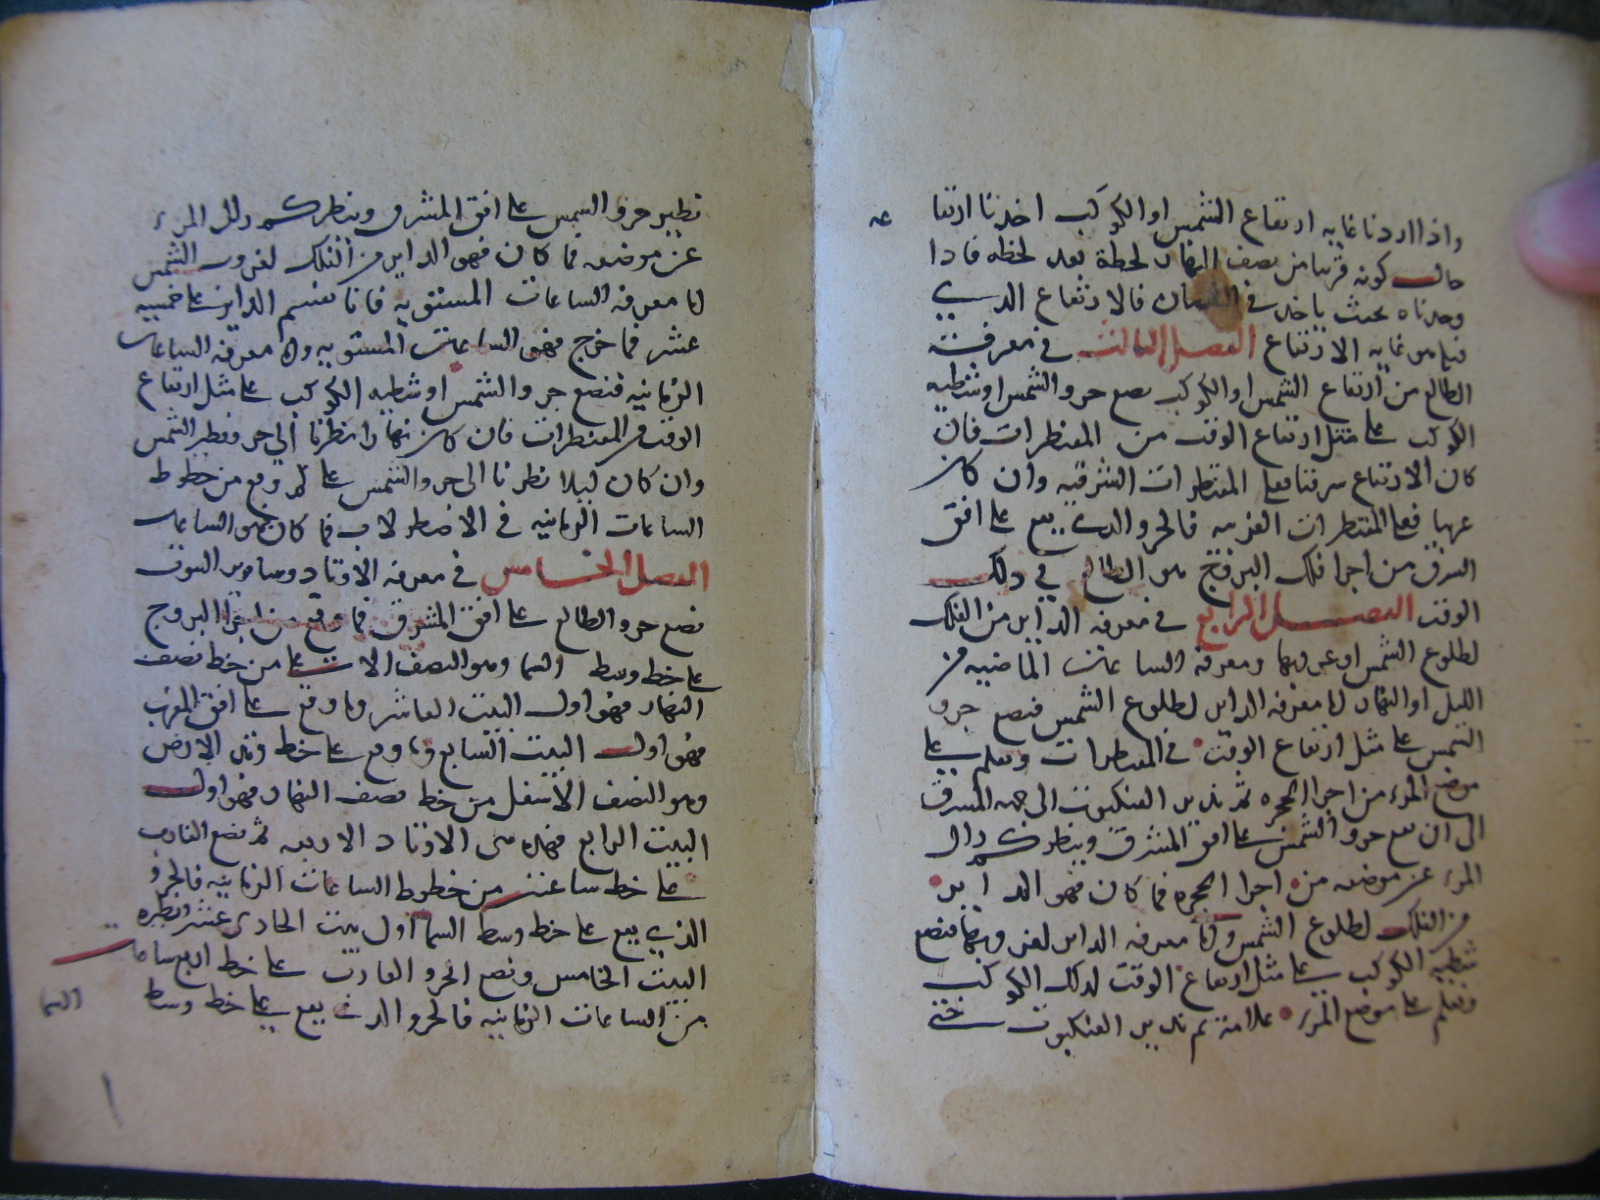 واذا اردنا غايه ارتفاع الشمس او الكوكب اخدنا ارتفا
عه
حالـــ كونه قريبا من نصف النهار لحظة بعد لحظه فادا
وجدناه بحيث ياخد في النقصان فالارتفاع الدي
قبله هو غايه الارتفاع الفصل الثالث في معرفة
الطالع من ارتفاع الشمس او الكوكب نضع جرو الشمس او شظيه
الكوكب على مثل ارتفاع الوقت من المقنطرات فان
كان الارتفاع شرقيا فعلى المقنطرات الشرقيه وان كان
غربيا فعلى المقنطرات الغربيه فالجرو الدي يقع على افق
الشرق من اجرا فلك البروج هو الطالع في دلك
الوقت الفصل الرابع في معرفه الداير من الفلك
لطلوع الشمس او غروبها ومعرفة الساعات الماضيه من
الليل او النهار اما معرفه الداير لطلوع الشمس فنضع جرو
الشمس على مثل ارتفاع الوقت في المقنطرات ونعلم على
موضع المرى من اجرا الحجره ثم ندير العنكبوت الى جهه المشرق
الى ان يقع جرو الشمس على افق المشرق وينظر كم زال
المرى عن موضعه من اجرا الحجره فما كان فهو الداير
من الفلك لطلوع الشمس واما معرفه الداير لغروبها فنضع
شظيه الكوكب على مثل ارتفاع الوقت لدلك الكوكب
ونعلم على موضع المرى علامة ثم ندير العنكبوت حتى
نظير جرو الشمس على افق المشرق وينظر كم زال المرى
عن موضعه فما كان فهو الداير من الفلك لغروب الشمس
اما معرفه الساعات المستويه فانا نقسم الداير على خمسه
عشر فما خرج فهو الساعات المستويه واما معرفه الساعات
الزمانيه فنضع جرو الشمس او شظيه الكوكب على مثل ارتفاع
الوقت من المقنطرات فان كان نهارا نظرنا الى جرو نظير الشمس
وان كان ليلا نظرنا الى جرو الشمس على كم وقع من خطوط
الساعات الزمانيه في الاضطرلاب فما كان فهو الساعات
الفصل الخامس في معرفه الاوتاد وساير البيوت
نضع جرو الطالع على افق المشرق فما وقع من اجرا البروج
على خط وسط السما وهو النصف الاعلى من خط نصف
النهار فهو اول البيت العاشر وما وقع على افق المغرب
فهو اول البيت السابع وما وقع على خط وتد الارض
وهو النصف الاسفل من خط نصف النهار فهو اول
البيت الرابع فهده هى الاوتاد الاربعه ثم نضع الغارب
على خط ساعتين من خطوط الساعات الزمانيه فالجرو
الذي يقع على خط وسط السما اول بيت الحادى عشر ونظيره
البيت الخامس ونضع الجرو الغارب على خط اربع ساعات
من الساعات الزمانيه فالجرو الدى يقع على خط وسط
السما